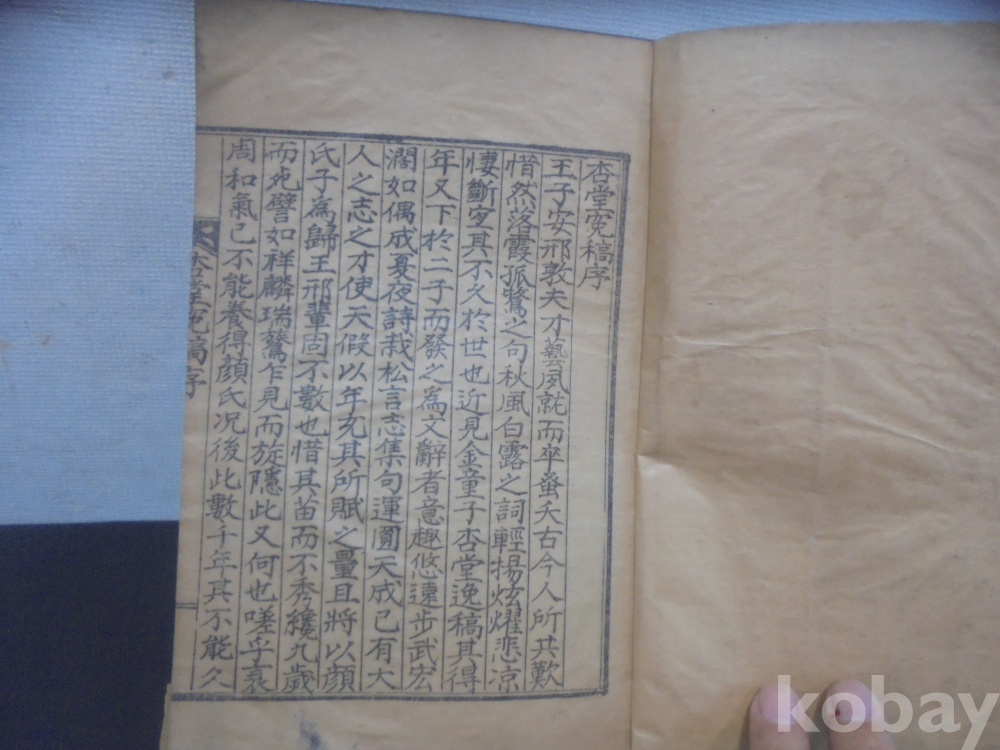 杏堂寃稿序
王子安邢敦夫才藝夙就而卒蚤夭古今人所共歎
惜然落霞孤鶩之句秋風白露之詞輕揚炫耀悲凉
悽斷宜其不久於世也近見金童子杏堂逸稿其得
年又下於二子而發之爲文辭者意趣悠遠步武宏
濶如偶成夏夜詩栽松言志集句運圜天成已有大
人之志之才使天假以年充其所賦之量且將以顔
氏子爲歸王邢輩固不數也惜其苗而不秀纔九歲
而死譬如祥麟瑞鷟乍見而旋隱此又何也嗟乎衰
周和氣已不能養得顔氏况後此數千年其不能久
杏堂寃稿序
kobay